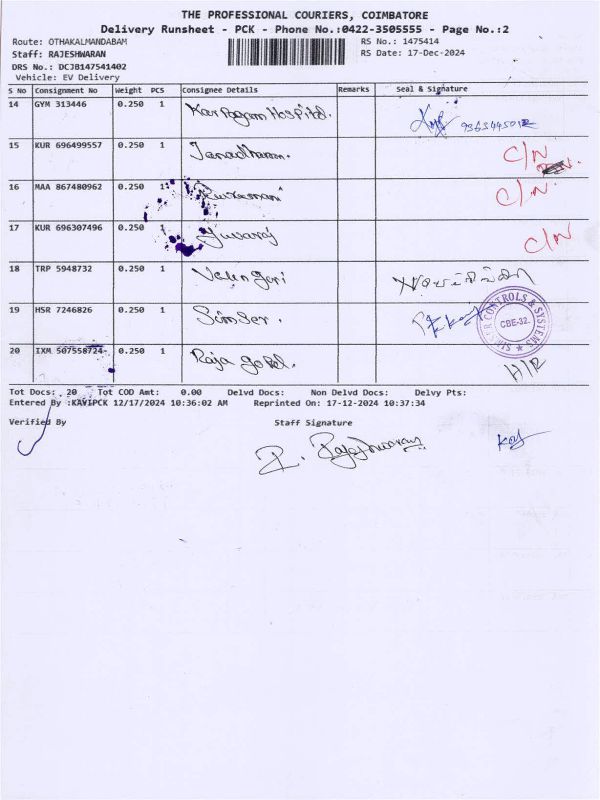 THE PROFESSIONAL COURIERS, COIMBATORE
Delivery Runsheet - PCK - Phone No.:0422-3505555 - Page No.:2
Route: OTHAKALMANDABAM RS No.: 1475414
Staff: RAJESHWARAN RS Date: 17-Dec-2024
DRS No.: DCJB147541402
Vehicle: EV Delivery
S No Consignment No Weight PCS Consignee Details Remarks Seal & Signature
14 GYM 313446 0.250 1 Karpagam Hospital.
15 KUR 696499557 0.250 1 Janadharam. C/N
16 MAA 867480962 0.250 1 C/N.
17 KUR 696307496 0.250 1 Yuvaraj C/N
18 TRP 5948732 0.250 1
19 HSR 7246826 0.250 1 Simser. CONTROLS & SYSTEMS CBE-32.
20 IXM 507558724 0.250 1 Raja gopal. H/R
Tot Docs: 20 Tot COD Amt: 0.00 Delvd Docs: Non Delvd Docs: Delvy Pts:
Entered By :KAVIPCK 12/17/2024 10:36:02 AM Reprinted On: 17-12-2024 10:37:34
Verified By Staff Signature
R. Rajeshwaran